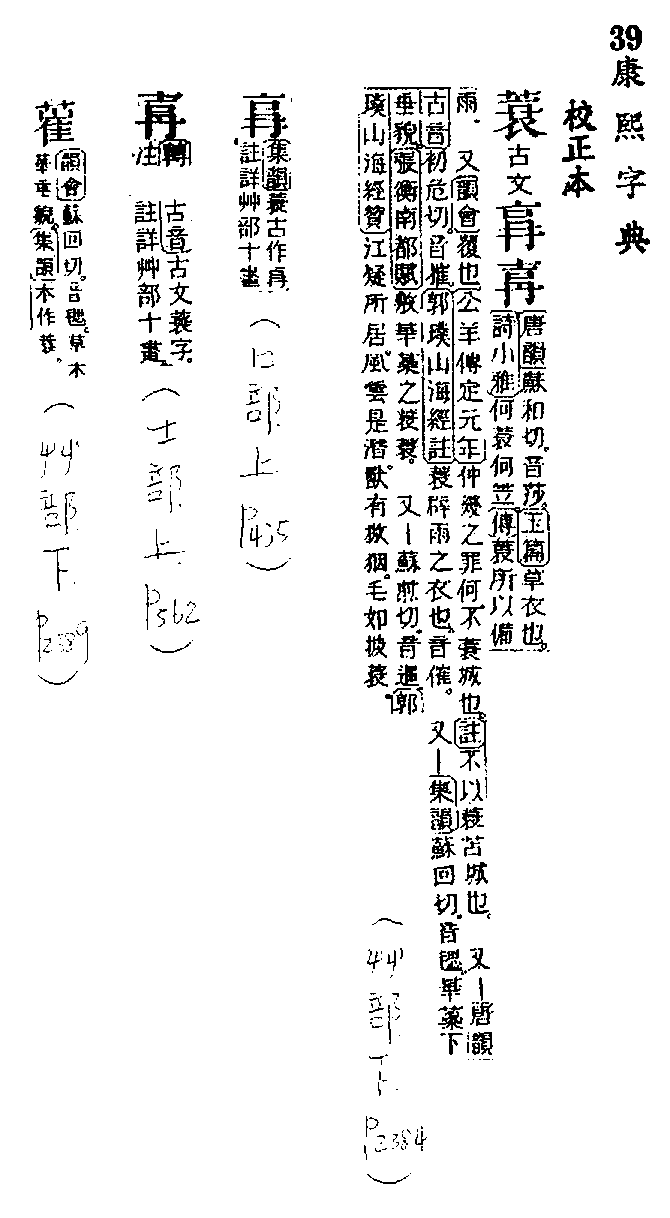 39
康熙字典
校正本
蓑 古文
唐韻蘇和切。音莎。玉篇草衣也。
詩小雅何蓑何笠。傳蓑所以備
雨。又韻會覆也。公羊傳定元年仲幾之罪何。不蓑城也。註不以蓑苫城也。又一唐韻
古音初危切。音催。郭璞山海經註蓑辟雨之衣也。音催。又一集韻蘇回切。音毸。華蘂下
垂貌。張衡南都賦敷華蘂之蓑蓑。又一蘇煎切。音 郭
璞山海經贊江疑所居。風雲是潛。獸有 㹶。毛如披蓑。
(艸部下 P2384)
集韻蓑古作
註詳艸部十畫
(口部上 P435)
古音古文蓑字。
註詳艸部十畫
(士部上 P562)
韻會蘇回切。音毸。草木
華垂貌。集韻本作蓑。
(艸部下 P2389)